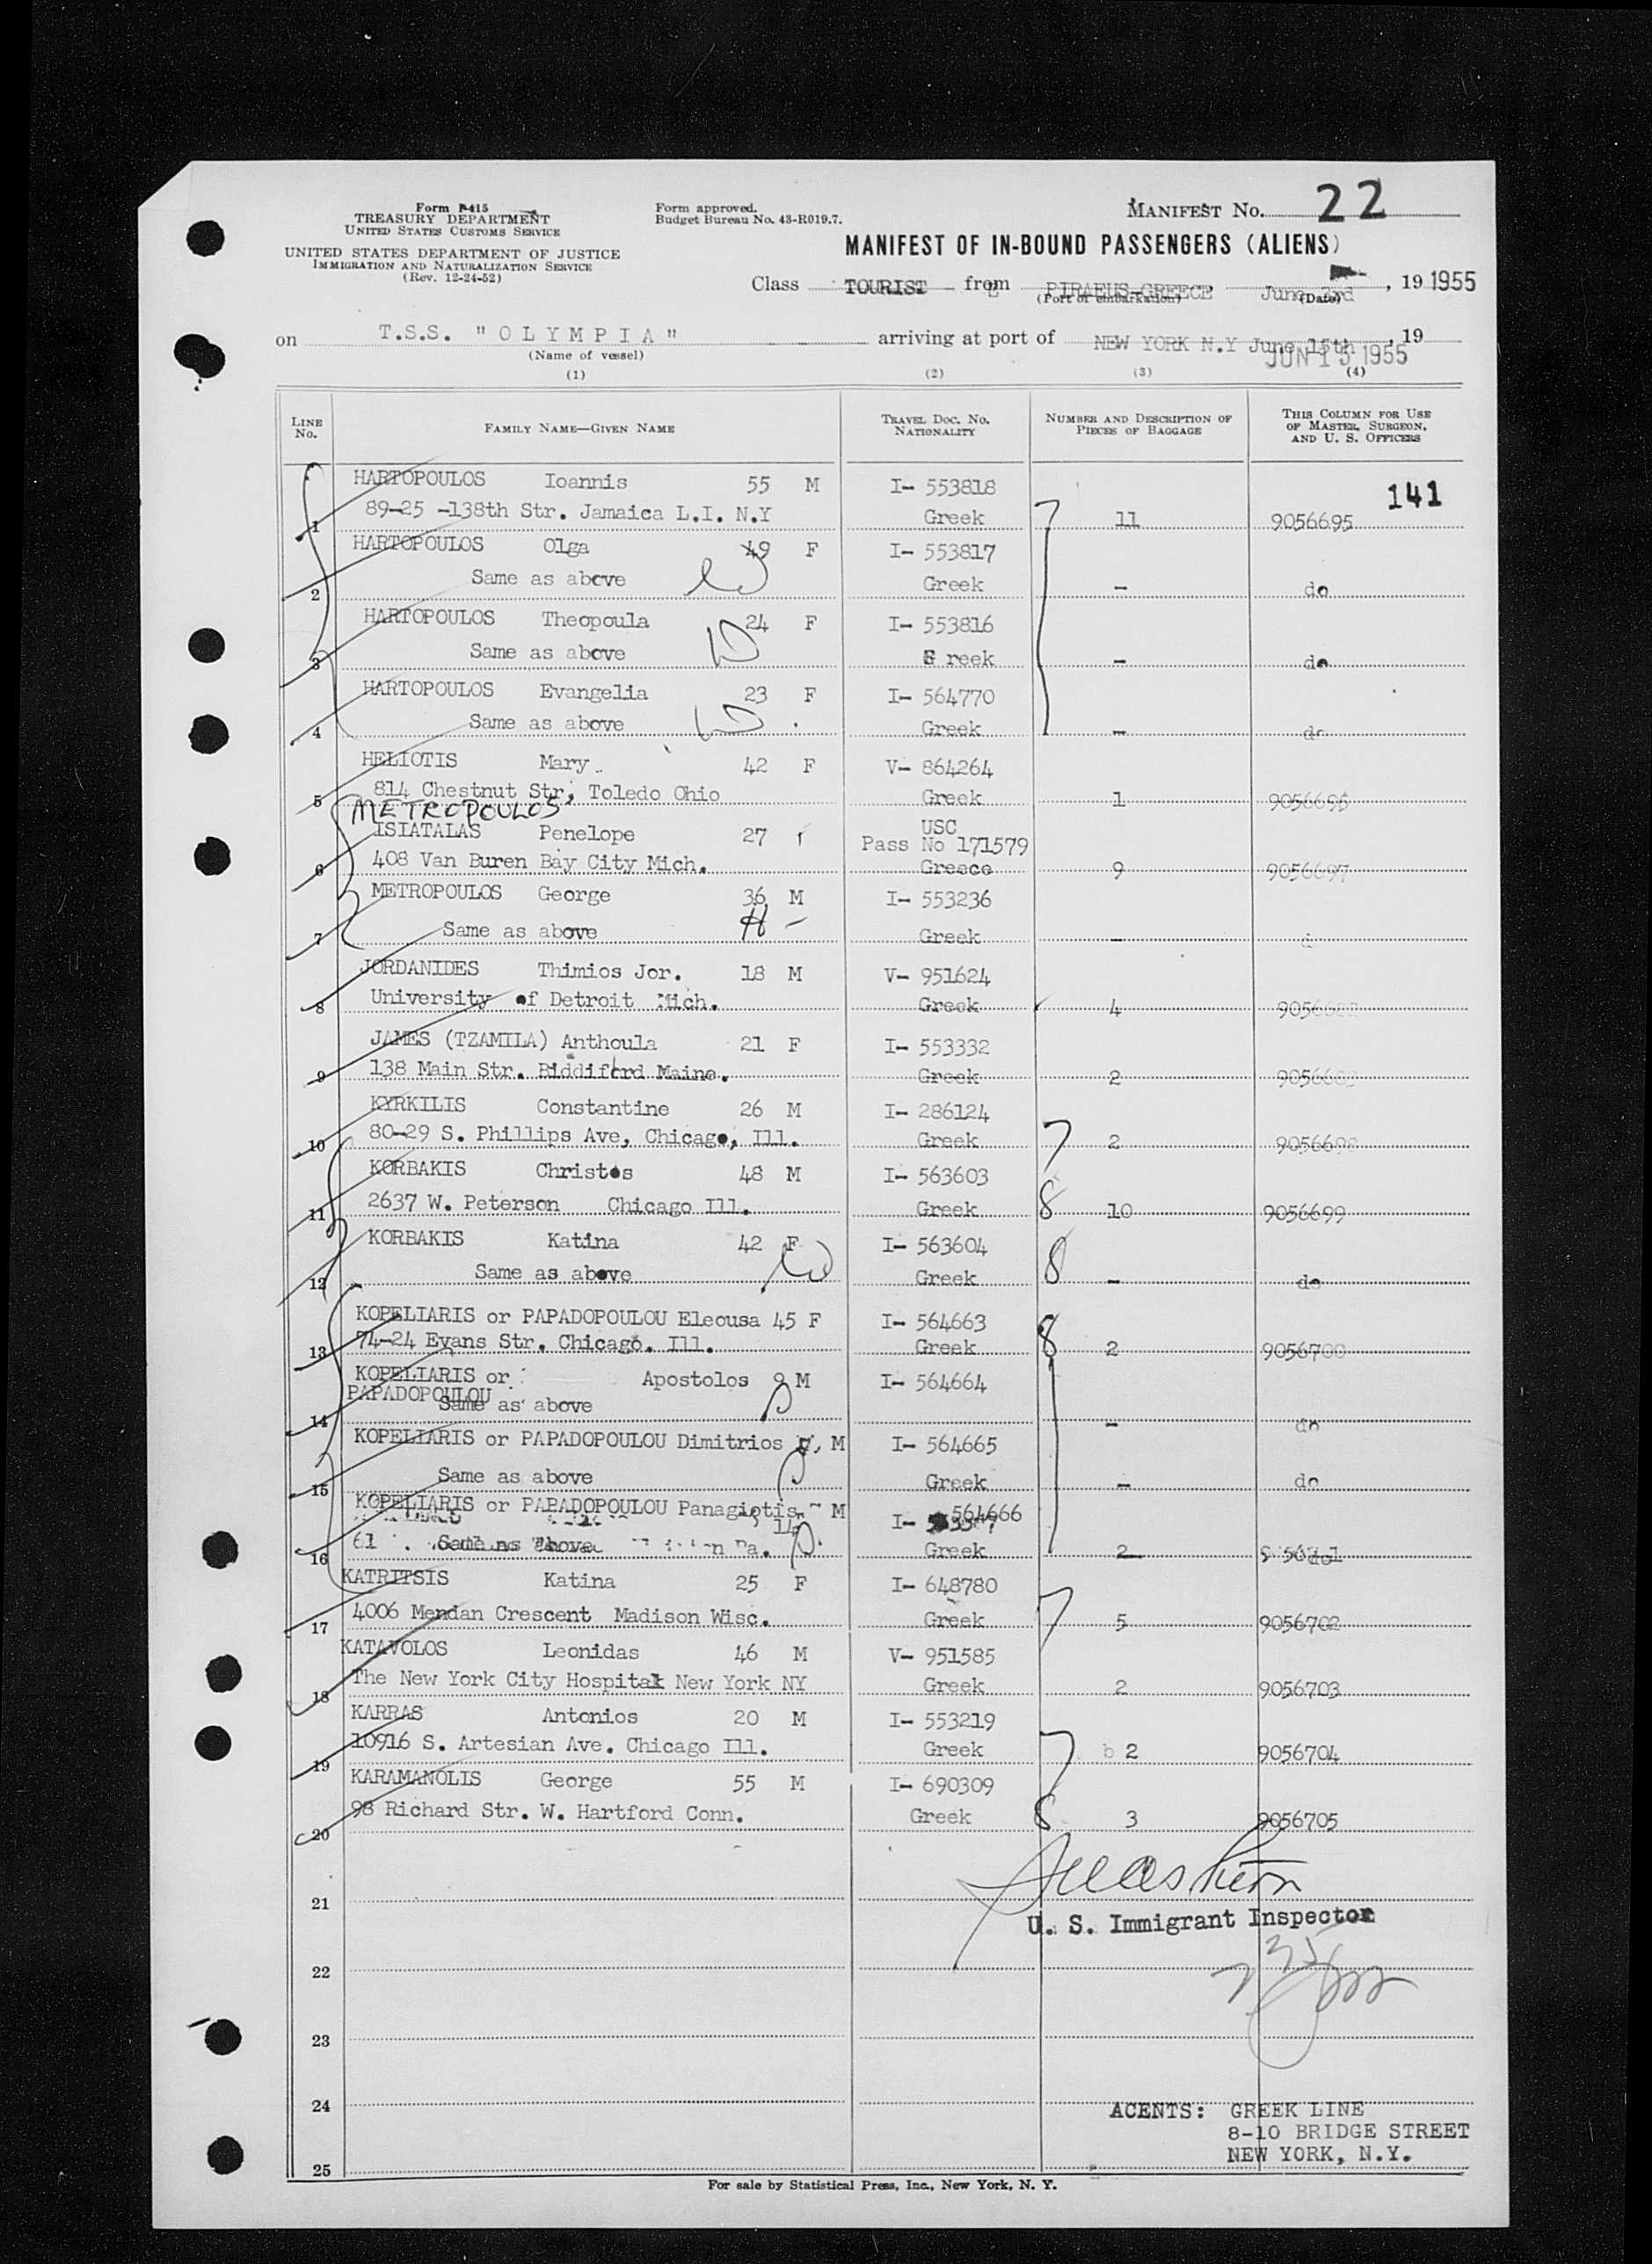 Form I-415
TREASURY DEPARTMENT
UNITED STATES CUSTOMS SERVICE
UNITED STATES DEPARTMENT OF JUSTICE
IMMIGRATION AND NATURALIZATION SERVICE
(Rev. 12-24-52)
Form approved.
Budget Bureau No. 43-R019.7.
MANIFEST NO. 22
MANIFEST OF IN-BOUND PASSENGERS (ALIENS)
Class TOURIST from PIRAEUS-GREECE, June 3rd, 19 1955
(Port of embarkation) (Date)
on T.S.S. "OLYMPIA" arriving at port of NEW YORK N.Y June 15th, 19
(Name of vessel) JUN 15 1955
(1) (2) (3) (4)
LINE No. FAMILY NAME—GIVEN NAME TRAVEL DOC. NO. NATIONALITY NUMBER AND DESCRIPTION OF PIECES OF BAGGAGE THIS COLUMN FOR USE OF MASTER, SURGEON, AND U. S. OFFICERS
HARTOPOULOS Ioannis 55 M I- 553818 141
1 89-25 -138th Str. Jamaica L.I. N.Y Greek 7 11 9056695
HARTOPOULOS Olga 49 F I- 553817
2 Same as above Greek - do
HARTOPOULOS Theopoula 24 F I- 553816
3 Same as above G reek - do
HARTOPOULOS Evangelia 23 F I- 564770
4 Same as above Greek - do
HELIOTIS Mary 42 F V- 864264
5 814 Chestnut Str, Toledo Ohio Greek 1 9056696
METROPOULOS
ISIATALAS Penelope 27 USC Pass No 171579
6 408 Van Buren Bay City Mich. Greece 9 9056697
METROPOULOS George 36 M I- 553236
7 Same as above Greek -
JORDANIDES Thimios Jor. 18 M V- 951624
8 University of Detroit Mich. Greek 4
JAMES (TZAMILA) Anthoula 21 F I- 553332
9 138 Main Str. Biddiford Maine. Greek 2
KYRKILIS Constantine 26 M I- 286124
10 80-29 S. Phillips Ave, Chicago, Ill. Greek 7 2 9056698
KORBAKIS Christos 48 M I- 563603
11 2637 W. Peterson Chicago Ill. Greek 8 10 9056699
KORBAKIS Katina 42 F I- 563604
12 Same as above Greek 8 - do
KOPELIARIS or PAPADOPOULOU Eleousa 45 F I- 564663
13 74-24 Evans Str. Chicago. Ill. Greek 8 2 9056700
KOPELIARIS or Apostolos 9 M I- 564664
PAPADOPOULOU
14 Same as above - do
KOPELIARIS or PAPADOPOULOU Dimitrios M I- 564665
15 Same as above Greek - do
KOPELIARIS or PAPADOPOULOU Panagiotis 14 M I- 564666
16 Same as Above Greek 2 do
KATRITSIS Katina 25 F I- 648780
17 4006 Mendan Crescent Madison Wisc. Greek 7 5 9056702
KATAVOLOS Leonidas 46 M V- 951585
18 The New York City Hospital New York NY Greek 2 9056703
KARRAS Antonios 20 M I- 553219
19 10916 S. Artesian Ave. Chicago Ill. Greek 7 2 9056704
KARAMANOLIS George 55 M I- 690309
20 98 Richard Str. W. Hartford Conn. Greek 8 3 9056705
21
U. S. Immigrant Inspector
22
23
24
AGENTS: GREEK LINE
8-10 BRIDGE STREET
NEW YORK, N.Y.
25
For sale by Statistical Press, Inc., New York, N. Y.